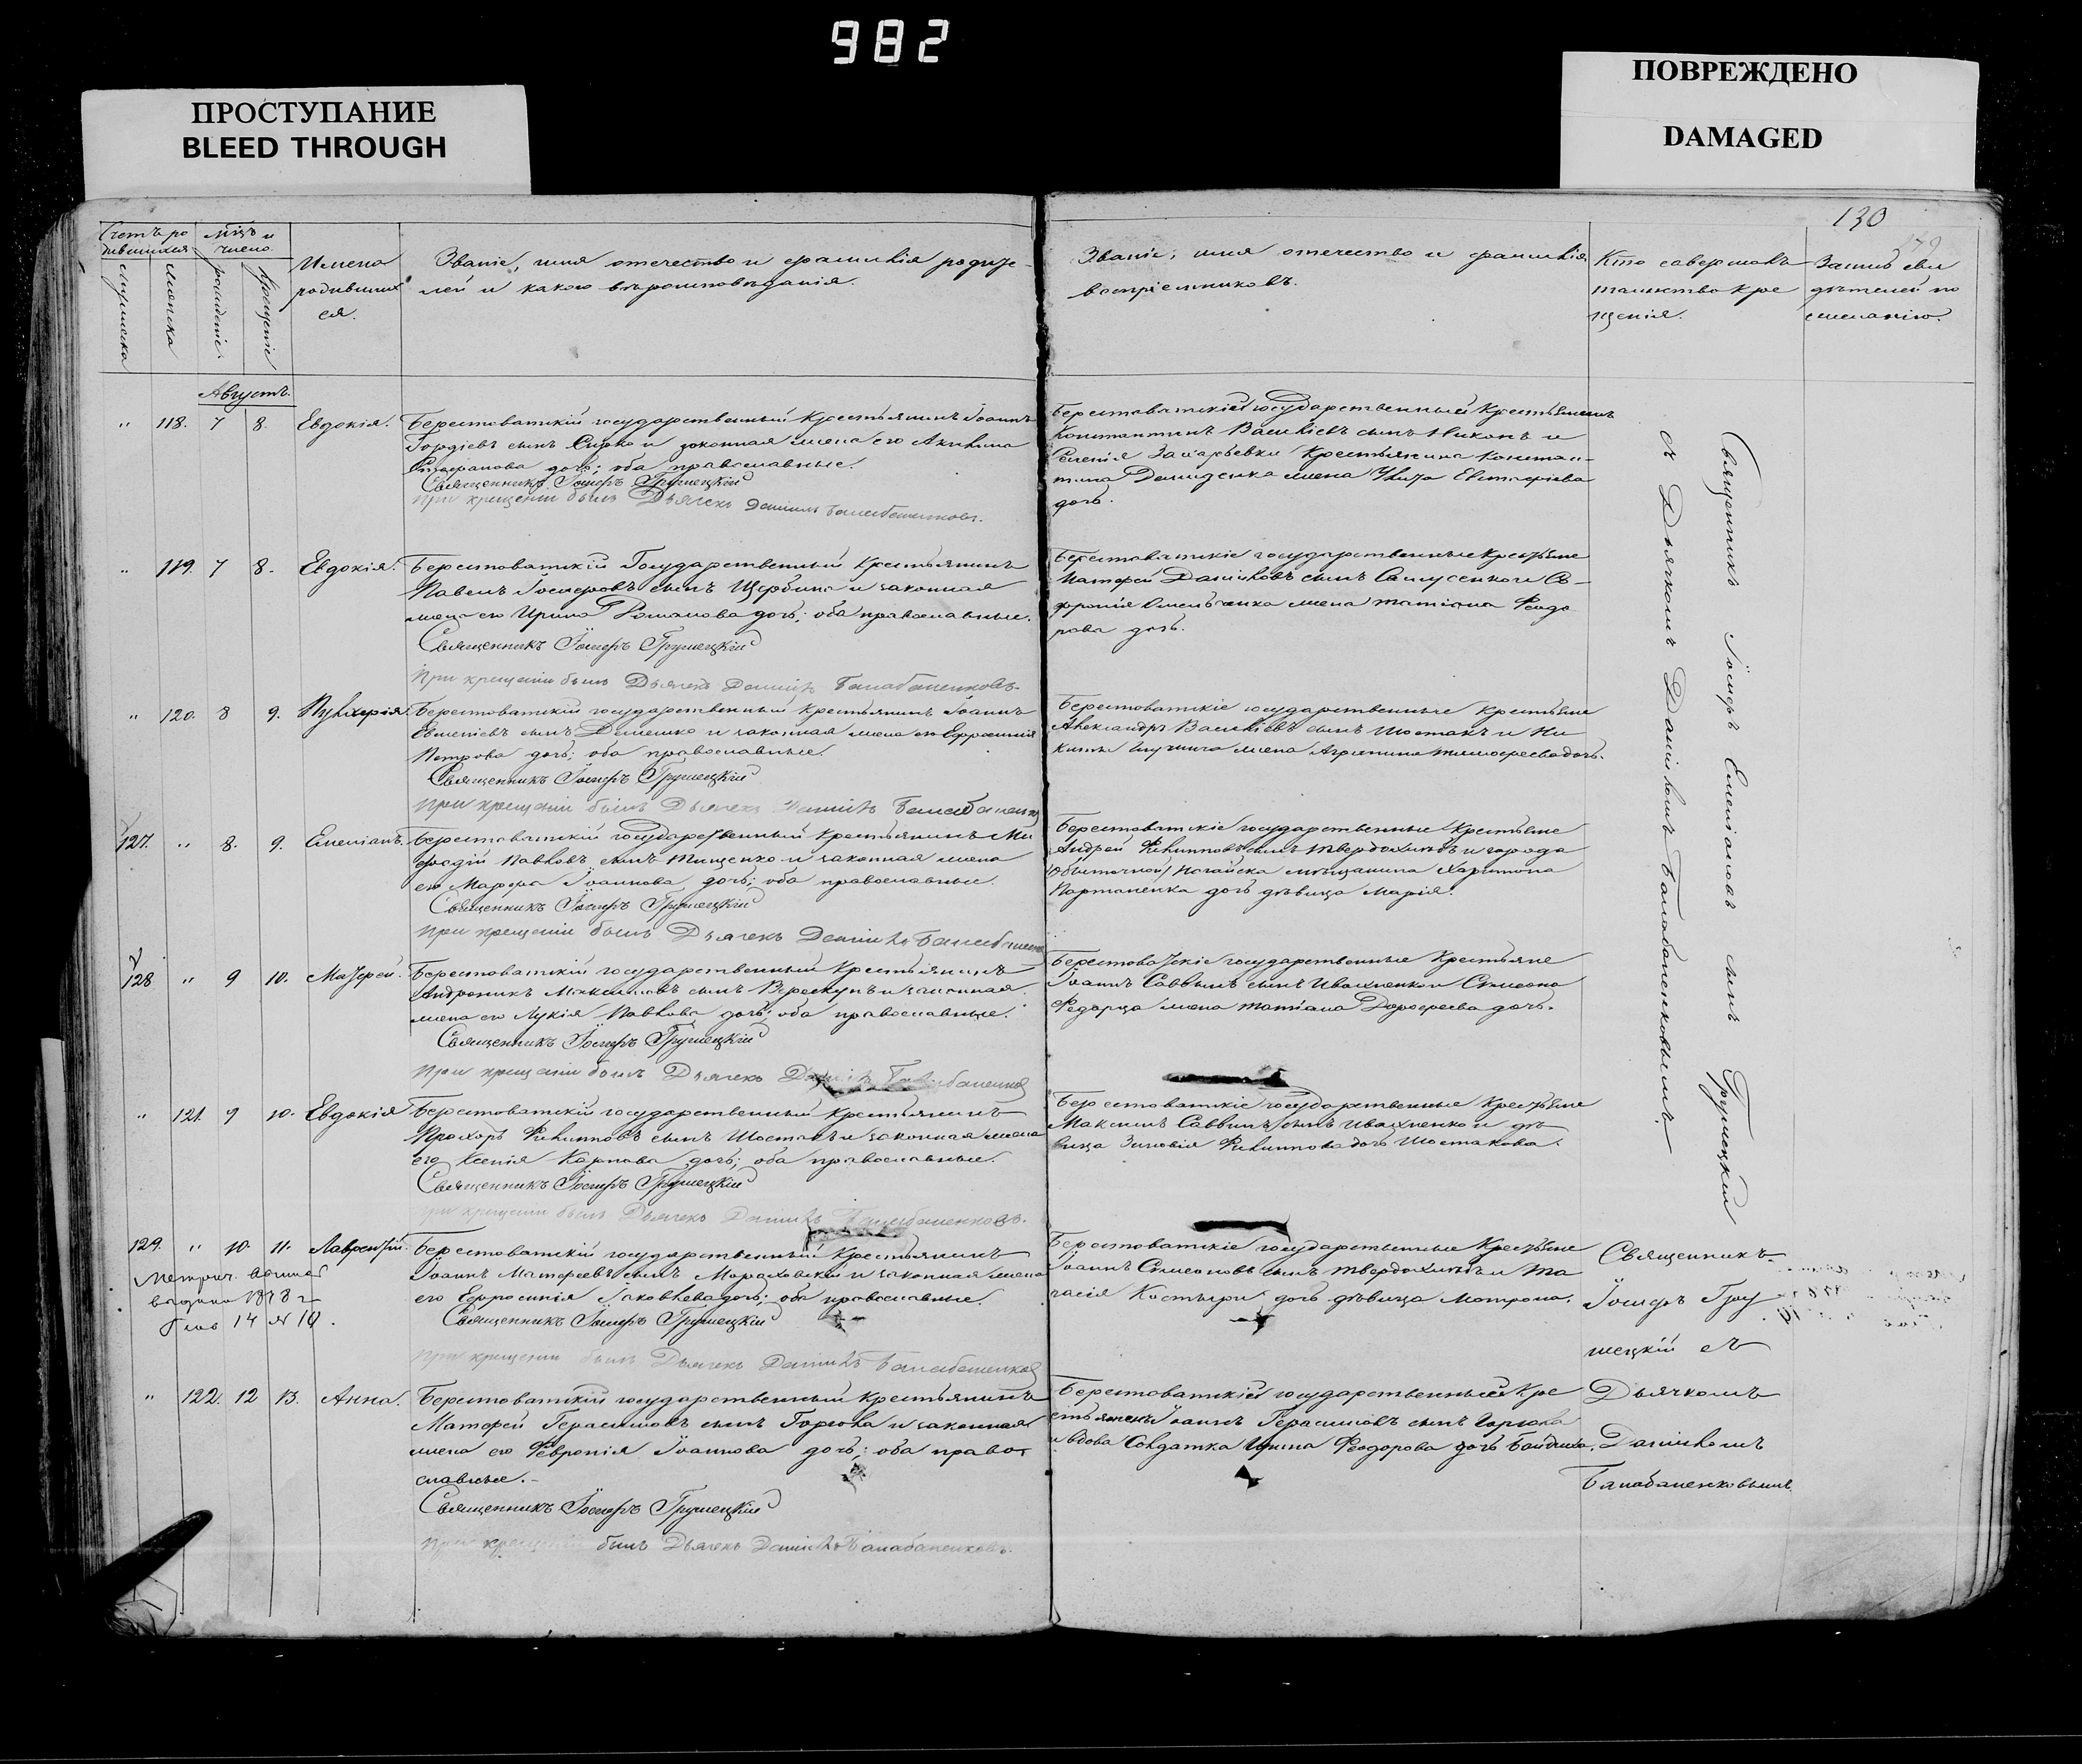 982
ПРОСТУПАНИЕ
BLEED THROUGH
ПОВРЕЖДЕНО
DAMAGED
130
Счетъ ро
дившихся
Мѣц. и
число
мужеска
женска
рожденіе
крещеніе
Имена
родивших
ся.
Званіе, имя отечество и фамилія родите-
лей и какого вѣроисповѣданія.
Званіе, имя отечество и фамилія
воспріемниковъ.
Кто совершалъ
таинство кре
щенія.
Запись сви
дѣтелей по
желанію.
Августъ.
" 118. 7 8. Евдокія.
Берестоватскій государственный Крестьянинъ Іоаннъ
Гордіевъ сынъ Сирко и законная жена его Акилина
дочь; оба православные.
Священникъ Іосифъ Грушецкій
При крещеніи былъ Дьячекъ Даніилъ Балабаненковъ.
Берестоватскій государственный Крестьянинъ
Константинъ Василіевъ сынъ и
Крестьянина Констан-
тина жена Улита
дочь.
" 119. 7 8. Евдокія.
Берестоватскій Государственный Крестьянинъ
Павелъ Іосифовъ сынъ Щербина и законная
жена его Ирина Романова дочь; оба православные.
Священникъ Іосифъ Грушецкій
При крещеніи былъ Дьячекъ Даніилъ Балабаненковъ.
Берестоватскіе государственные Крестьяне
Матфей Даніиловъ сынъ и Со-
фронія Омельченка жена Татіана Феодо
рова дочь.
" 120. 8 9. Пульхерія.
Берестоватскій государственный крестьянинъ Іоаннъ
Евменіевъ сынъ и законная жена его Ефросинія
Петрова дочь; оба православные.
Священникъ Іосифъ Грушецкій
При крещеніи былъ Дьячекъ Даніилъ
Берестоватскіе государственные Крестьяне
Александръ Василіевъ сынъ Шостакъ и Ни
киты жена Агрипина Тимофеева дочь.
127. " 8. 9. Емеліанъ.
Берестоватскій государственный Крестьянинъ Ме
фодій Павловъ сынъ Тищенко и законная жена
его Марфа Іоаннова дочь; оба православные.
Священникъ Іосифъ Грушецкій
При крещеніи былъ Дьячекъ Даніилъ
Берестоватскіе государственные Крестьяне
Андрей Филипповъ сынъ Твердохлѣбъ и города
Ногайска мѣщанина Харитона
дочь дѣвица Марія.
128 " 9 10. Матфей.
Берестоватскій государственный Крестьянинъ
Андроникъ Максимовъ сынъ и законная
жена его Лукія Павлова дочь; оба православные.
Священникъ Іосифъ Грушецкій
При крещеніи былъ Дьячекъ
Берестоватскіе государственные Крестьяне
Іоаннъ Саввинъ сынъ Ивахненко и Симеона
Федорца жена Татіана Дорофеева дочь.
" 121. 9 10. Евдокія
Берестоватскій государственный крестьянинъ
Прохоръ Филипповъ сынъ Шостакъ и законная жена
его Ксенія Карпова дочь; оба православные.
Священникъ Іосифъ Грушецкій
При крещеніи былъ Дьячекъ Даніилъ Балабаненковъ.
Берестоватскіе государственные Крестьяне
Максимъ Саввинъ сынъ Ивахненко и дѣ
вица Зиновія Филиппова дочь Шостакова.
129. " 10. 11. Лаврентій.
Метрич. выпись
выдана 1878 г.
14 № 10.
Берестоватскій государственный Крестьянинъ
Іоаннъ Матфеевъ сынъ и законная жена
его Ефросинія Іаковлева дочь; оба православные.
Священникъ Іосифъ Грушецкій
При крещеніи былъ Дьячекъ Даніилъ
Берестоватскіе государственные Крестьяне
Іоаннъ Симеоновъ сынъ Твердохлѣбъ и Та
расія дочь дѣвица Матрона.
" 122. 12 13. Анна.
Берестоватскій государственный Крестьянинъ
Матфей Герасимовъ сынъ и законная
жена его Февронія Іоаннова дочь; оба право-
славные.
Священникъ Іосифъ Грушецкій
При крещеніи былъ Дьячекъ Даніилъ Балабаненковъ.
Берестоватскій государственный Кре
стьянинъ Іоаннъ Герасимовъ сынъ
и вдова Солдатка Ирина Феодорова дочь
Священникъ Іосифъ Емеліановъ сынъ Грушецкій
съ Дьячкомъ Даніиломъ Балабаненковымъ.
Священникъ
Іосифъ Гру
шецкій съ
Дьячкомъ
Даніиломъ
Балабаненковымъ.